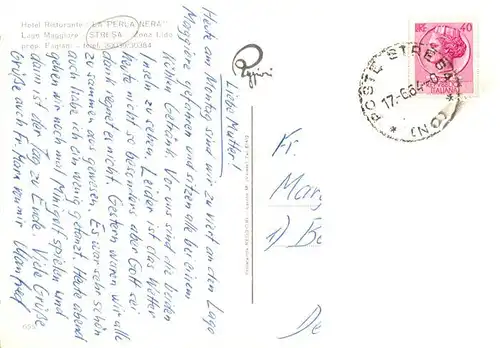 Hotel Ristorante "LA PERLA NERA"
Lago Maggiore STRESA Zona Lido
prop. Pagnani - telef.
Liebe Mutter!
Heute am Montag sind wir zu viert an den Lago
Maggiore gefahren und sitzen alle bei einem
kühlen Getränk. Vor uns sind die beiden
Inseln zu sehen. Leider ist das Wetter
heute nicht so besonders aber Gott sei
dank regnet es nicht. Gestern waren wir alle
zusammen aus gewesen. Es war sehr schön
auch habe ich ein wenig getanzt. Heute abend
gehen wir noch mal Minigolf spielen und
dann ist der Tag zu Ende. Viele Grüße
Grüße auch Fr. von mir Manfred
POSTE STRESA
17-6.64
LIRE 40
ITALIANA
Fr.
Marg
1) Be
De